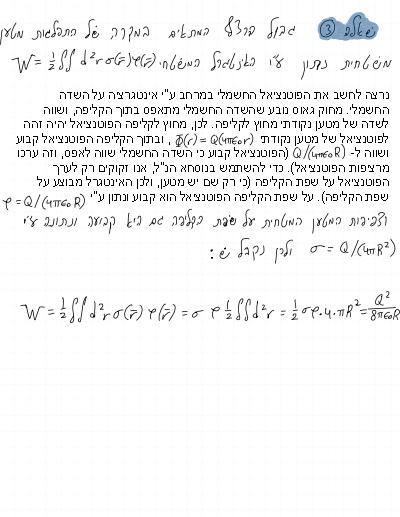 שאלה 3 גבול רציף המתאים במקרה של התפלגות מטען
משטחית נתון ע"י האינטגרל המשטחי. W = ½∬d²r σ(r̄)φ(r̄)
נרצה לחשב את הפוטנציאל החשמלי במרחב ע"י אינטגרציה על השדה
החשמלי. מחוק גאוס נובע שהשדה החשמלי מתאפס בתוך הקליפה, ושווה
לשדה של מטען נקודתי מחוץ לקליפה. לכן, מחוץ לקליפה הפוטנציאל יהיה זהה
לפוטנציאל של מטען נקודתי φ(r) = Q/(4πε₀r), ובתוך הקליפה הפוטנציאל קבוע
ושווה ל- Q/(4πε₀R) (הפוטנציאל קבוע כי השדה החשמלי שווה לאפס, וזה ערכו
מרציפות הפוטנציאל). כדי להשתמש בנוסחא הנ"ל, אנו זקוקים רק לערך
הפוטנציאל על שפת הקליפה (כי רק שם יש מטען, ולכן האינטגרל מבוצע על
שפת הקליפה). על שפת הקליפה הפוטנציאל הוא קבוע ונתון ע"י φ = Q/(4πε₀R)
וצפיפות המטען המשטחית על שפת הקליפה גם היא קבועה ונתונה ע"י
σ = Q/(4πR²) ולכן נקבל ש:
W = ½∬d²r σ(r̄) φ(r̄) = σ φ ½∬d²r = ½σφ·4·πR² = Q²/8πε₀R